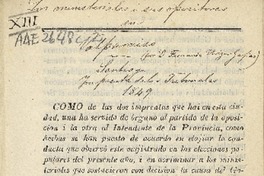 Los ministeriales i sus opositores
en
XIII
AAE 2648
Valparaiso
por D. Fernando
Santiago
Imprenta de los Tribunales
1849
COMO de las dos imprentas que hai en esta ciu-
dad, una ha servido de órgano al partido de la oposi-
cion i la otra al Intendente de la Provincia, como
ambas se han puesto de acuerdo en elojiar la con-
ducta que observó este majistrado en las elecciones po-
pulares del presente año, i en acriminar a los ministe-
riales que sostuvieron con decision la causa del